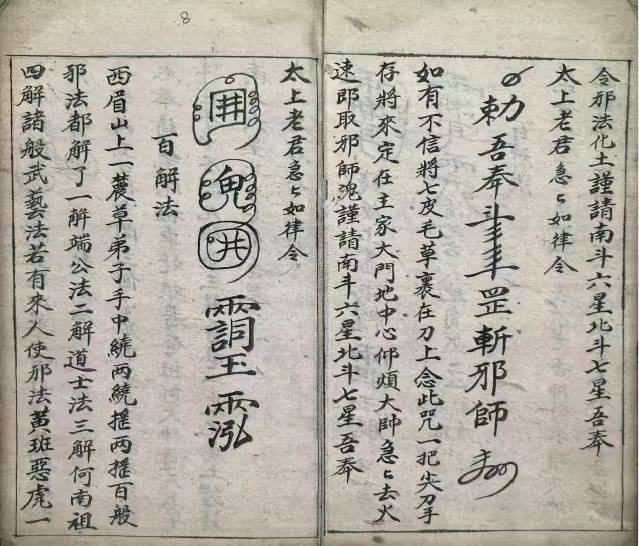 8
令邪法化土謹請南斗六星北斗七星吾奉
太上老君急〻如律令
勅吾奉罡斬邪師
如有不信將七皮毛草裹在刀上念此咒一把尖刀手
存將來定在主家大門地中心仰煩大師急〻去火
速即取邪師魂謹請南斗六星北斗七星吾奉
太上老君急〻如律令
魂井玉
百解法
西眉山上一草弟子手中繞两繞摇两摇百般
邪法都解了一解端公法二解道士法三解何南祖
四解諸般武藝法若有來人使邪法黄班惡虎一